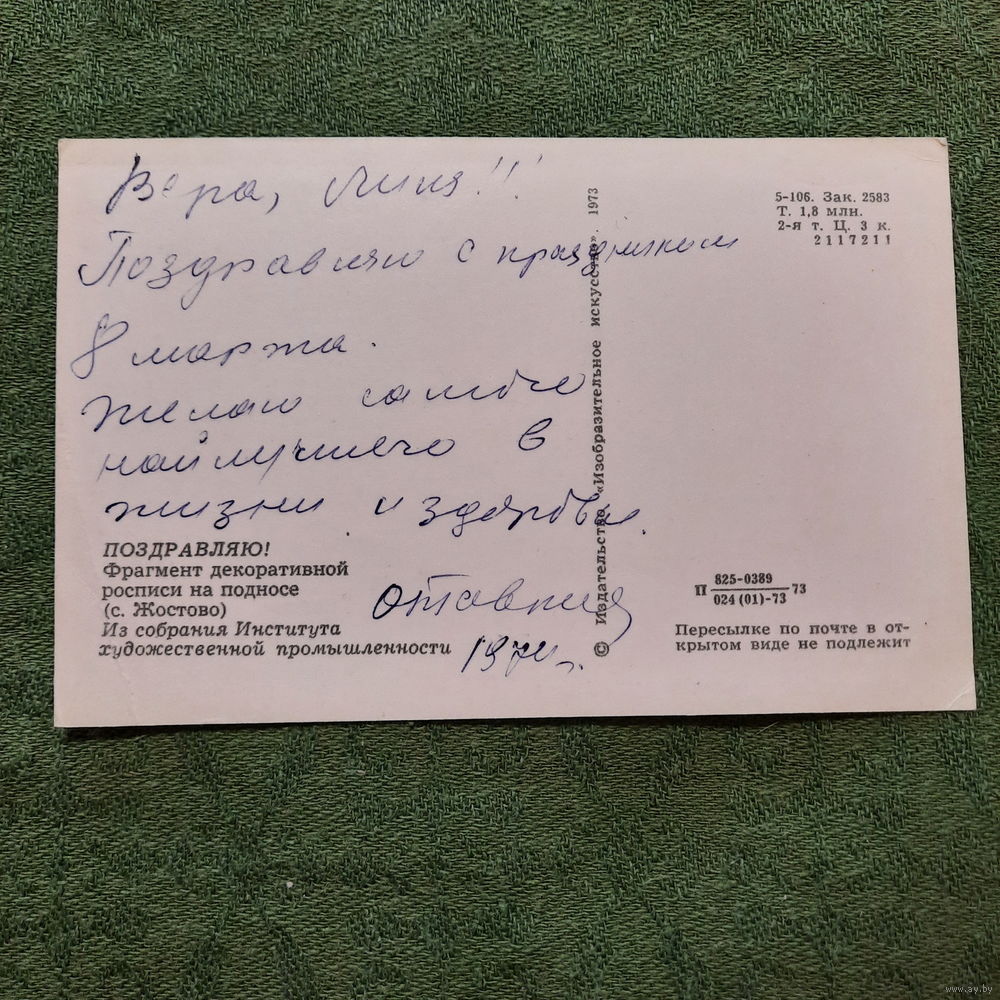 Вера, Лиля!!!
Поздравляю с праздником
8 марта.
Желаю самого
найлучшего в
жизни и здоровья.
1974 г.
ПОЗДРАВЛЯЮ!
Фрагмент декоративной
росписи на подносе
(с. Жостово)
Из собрания Института
художественной промышленности
© Издательство «Изобразительное искусство». 1973
5-106. Зак. 2583
Т. 1,8 млн.
2-я т. Ц. 3 к.
2117211
П 825-0389
024 (01)-73 73
Пересылке по почте в от-
крытом виде не подлежит
www.ay.by